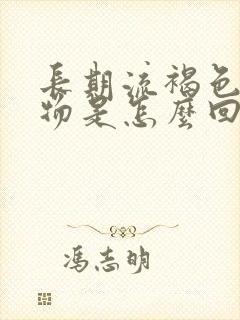 長期流褐色
物是怎麼回
馮志明